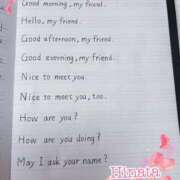 Good morning, my friend.
Hello, my friend.
Good afternoon, my friend.
Good evening, my friend.
Nice to meet you.
Nice to meet you, too.
How are you?
How are you doing?
May I ask your name?
Hinata